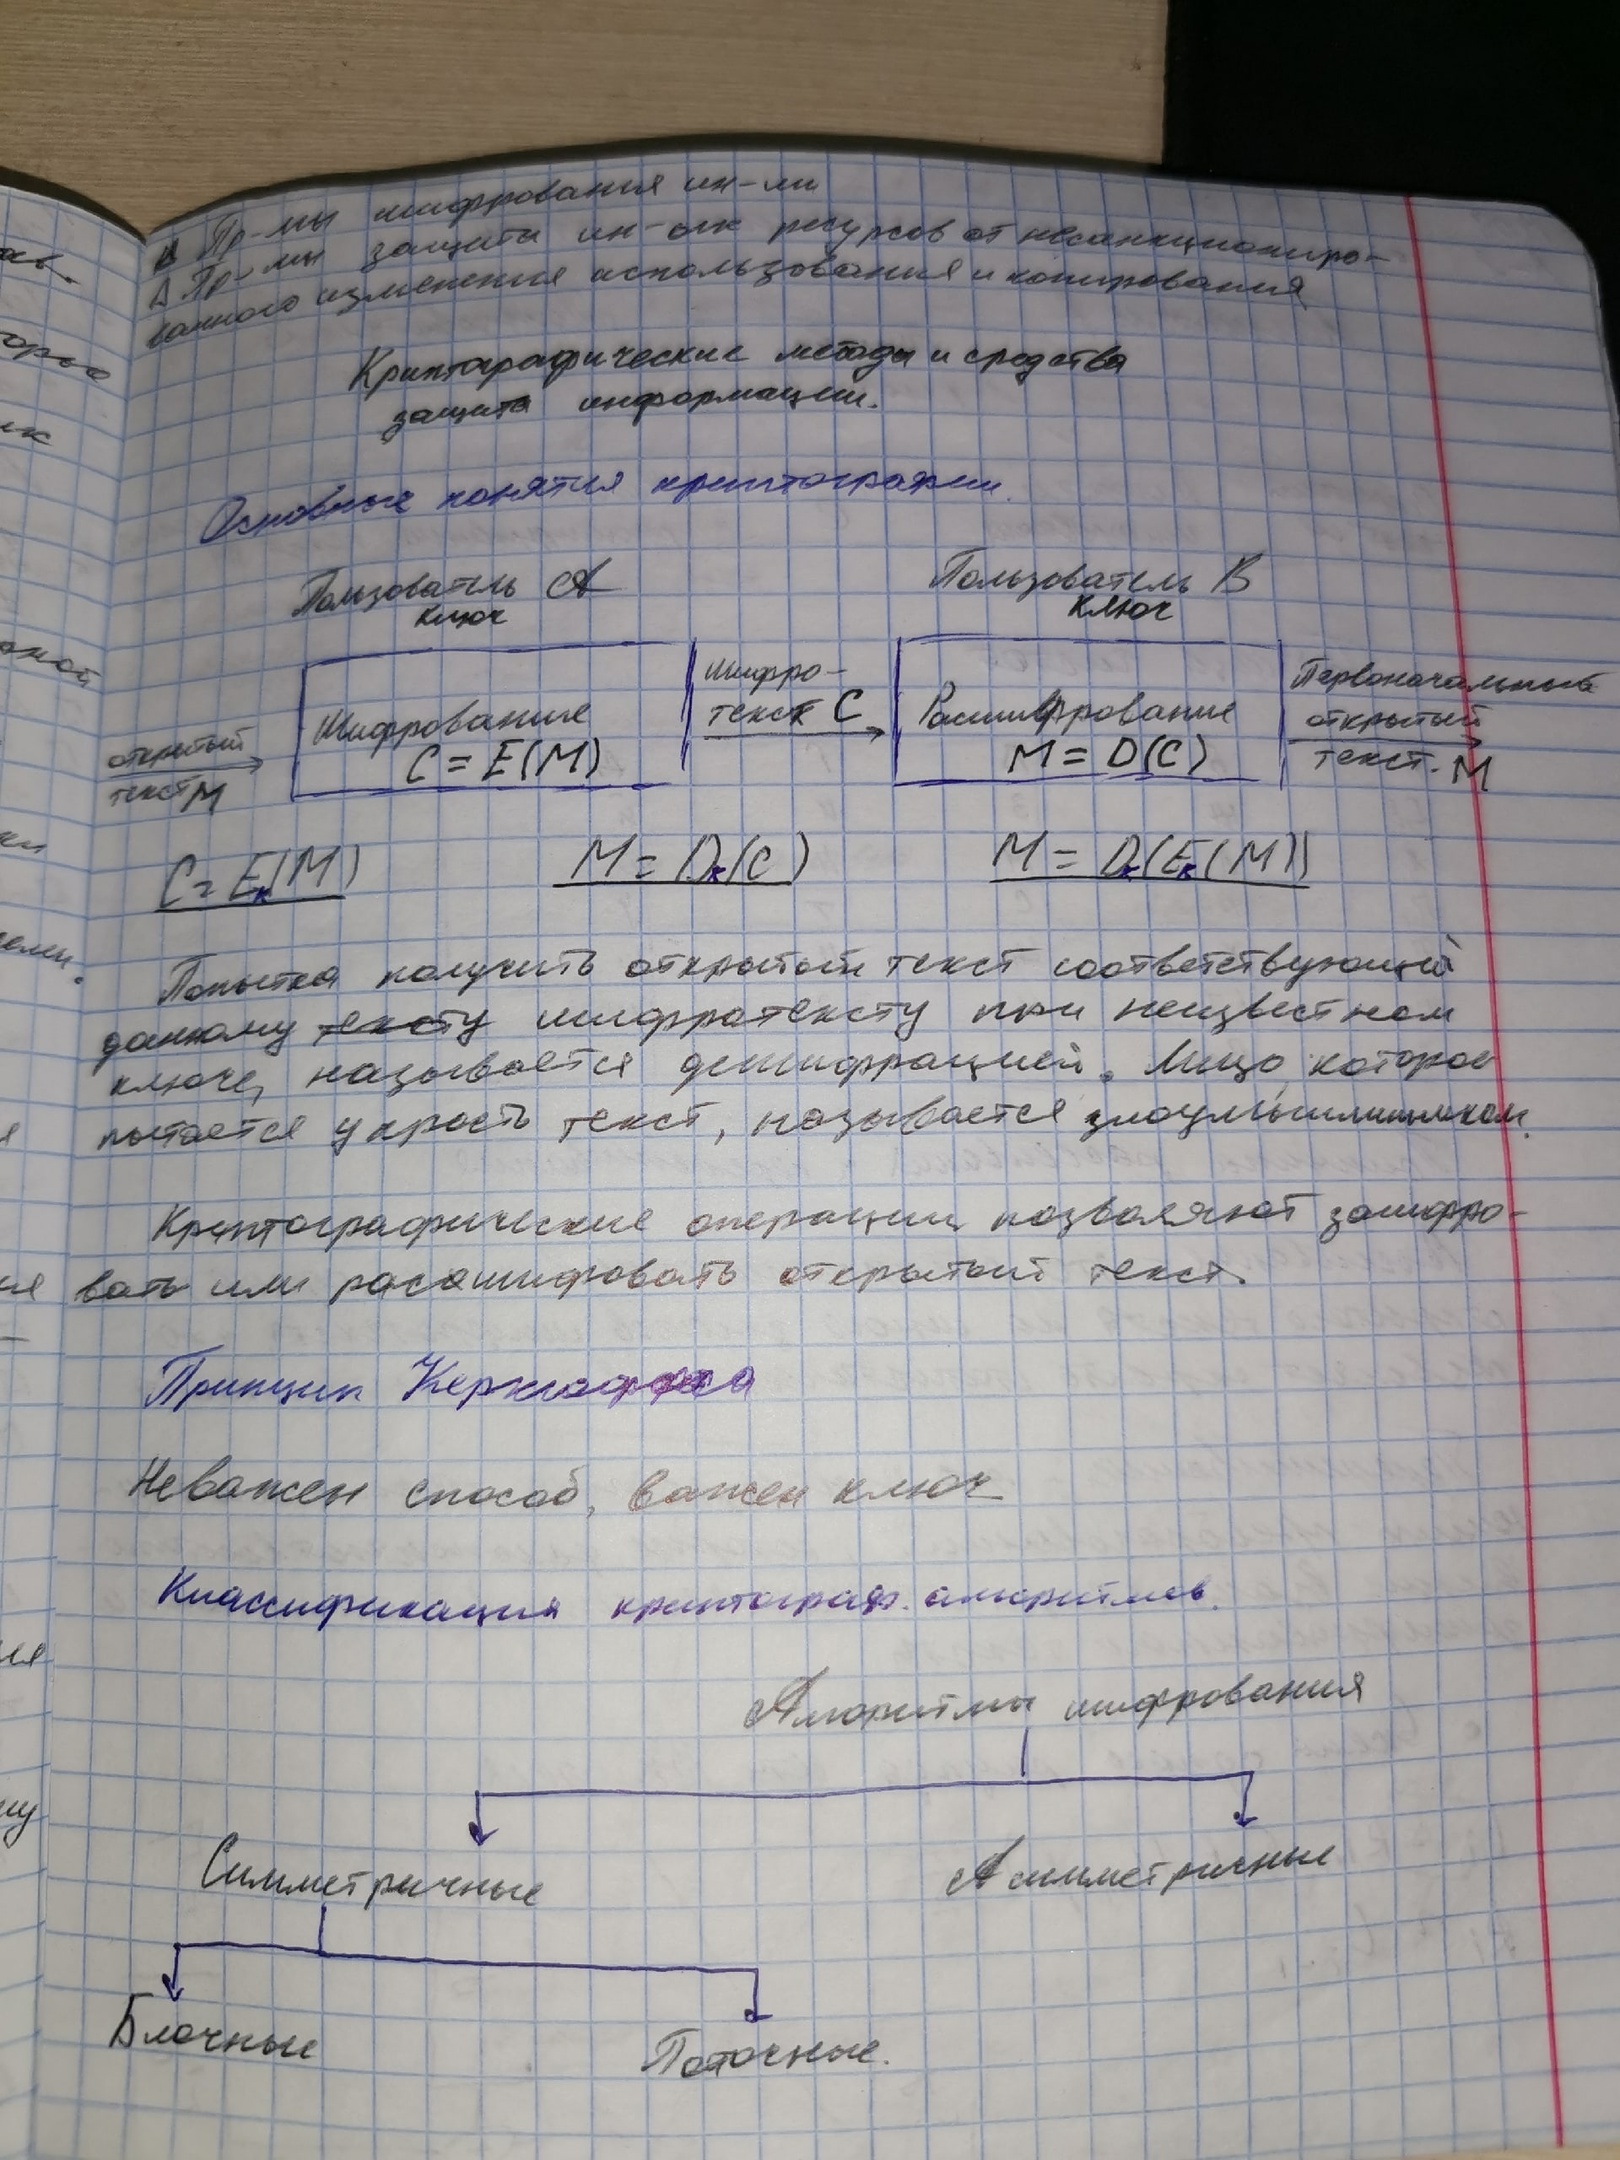 Δ Пр-мы шифрования ин-ии
Δ Пр-мы защиты ин-ых ресурсов от несанкциониро-
ванного изменения использования и копирования
Криптографические методы и средства
защита информации.
Основные понятия криптографии.
Ползователь A
Пользователь B
ключ
ключ
Шифро-
текст C
Первоначальный
открытый
текст. M
открытый
текст M
Шифрование
C = E(M)
Расшифрование
M = D(C)
C = Eк(M)
M = Dк(C)
M = Dк(Eк(M))
Попытка получить открытый текст соответствующий
данному тексту шифротексту при неизвестном
ключе, называется дешифрацией. Лицо которое
пытается украсть текст, называется злоумышлинником.
Криптографические операции позволяют зашифро-
вать или расшифровать открытый текст.
Принцип
Неважен способ, важен ключ
Классификация криптограф. алгоритмов.
Алгоритмы шифрования
Симметричные
Асимметричные
Блочные
Поточные.